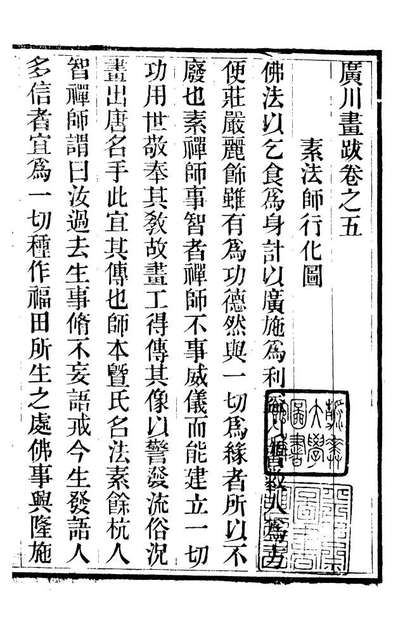 廣川畫跋卷之五
素法師行化圖
佛法以乞食為身計以廣施為利
便莊嚴麗飾雖有為功德然與一切為緣者所以不
廢也素禪師事智者禪師不事威儀而能建立一切
功用世敬奉其敎故畫工得傳其像以警發流俗況
畫出唐名手此宜其傳也師本曁氏名法素餘杭人
智禪師謂曰汝過去生事脩不妄語戒今生發語人
多信者宜為一切種作福田所生之處佛事興隆施
大學
圖書